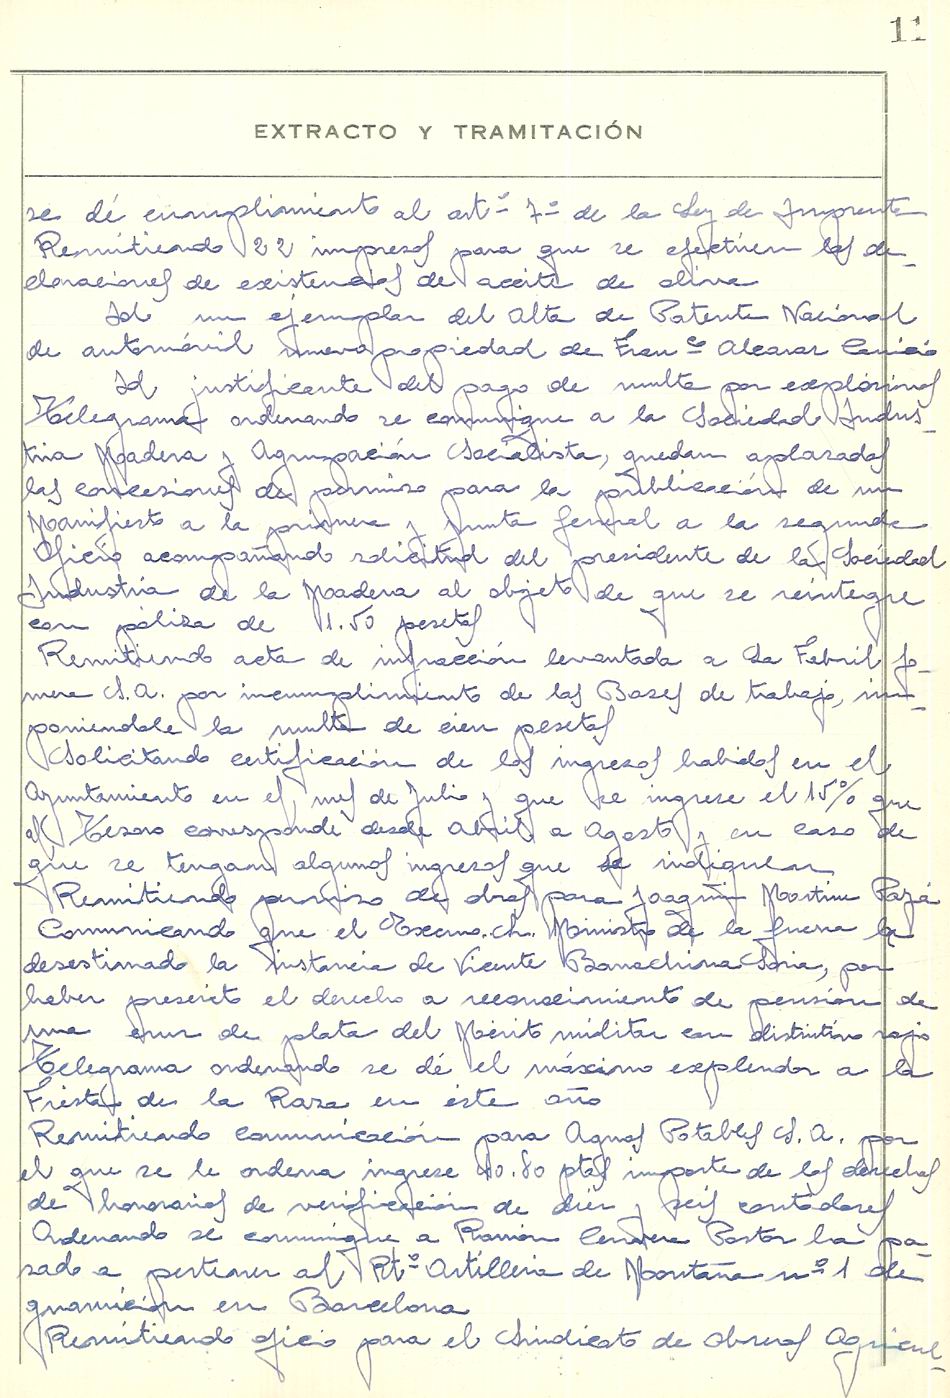 11
EXTRACTO Y TRAMITACIÓN
se dé cumplimiento al artº 7º de la Ley de Imprenta
Remitiendo 22 impresos para que se efectúen las de-
claraciones de existencias de aceite de oliva
Id un ejemplar del Alta de Patente Nacional
de automóvil nuevo propiedad de Franco Alcaraz
Id justificante del pago de multa por explosivos
Telegrama ordenando se comunique a la Sociedad Indus-
tria Madera y Agrupación Socialista, quedan aplazados
las concesiones de permiso para la publicación de un
Manifiesto a la primera y junta general a la segunda
Oficio acompañando solicitud del presidente de la Sociedad
Industria de la Madera al objeto de que se reintegre
con póliza de 1.50 pesetas
Remitiendo acta de infracción levantada a La Febril Jo-
mera S.A. por incumplimiento de las Bases de trabajo, im-
poniendole la multa de cien pesetas
Solicitando certificación de los ingresos habidos en el
Ayuntamiento en el mes de Julio y que se ingrese el 15% que
al Tesoro corresponde desde Abril a Agosto y en caso de
que se tengan algunos ingresos que se indiquen
Remitiendo permiso de obras para Joaquin Martine Payá
Comunicando que el Excmo. Sr. Ministro de la Guerra ha
desestimado la instancia de Vicente Soria, por
haber prescrito el derecho a reconocimiento de pensión de
una cruz de plata del Mérito militar con distintivo rojo
Telegrama ordenando se dé el máximo explendor a la
Fiesta de la Raza en este año
Remitiendo comunicación para Aguas Potables S.A. por
el que se le ordena ingrese 40.80 ptas importe de los derechos
de honorarios de verificación de diez y seis contadores
Ordenando se comunique a Ramón Cervera Pastor ha pa-
sado a pertener al Rtº Artilleria de Montaña nº 1 de
guarnición en Barcelona
Remitiendo oficio para el Sindicato de Obreros Agricul-